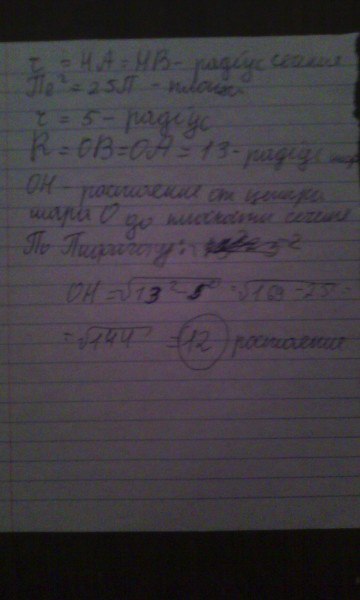 r = HA = HB - радіус сечения
Пr² = 25П - площ
r = 5 - радіус
R = OB = OA = 13 - радіус шар
OH - растояние от центра
шара O до плоскости сечения
По Пифагору:
OH = √13² - 5² = √169 - 25 =
= √144 = 12 растояние